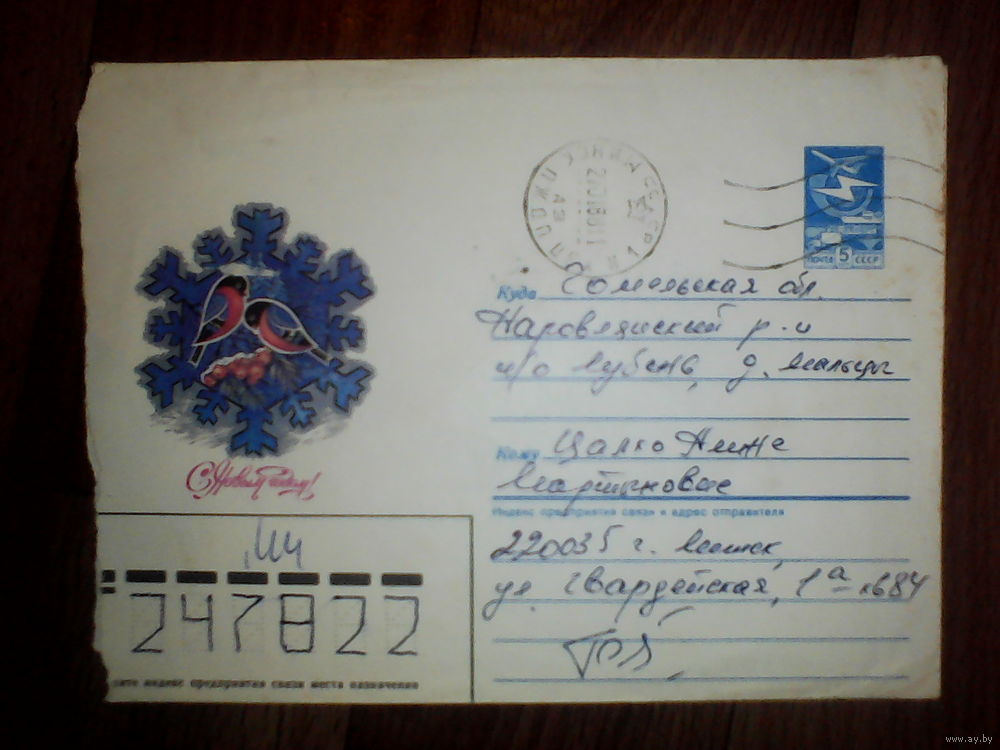 ПОЧТА 5 СССР
МИНСК
Куда Гомельская обл.
Наровлянский р-н
п/о Лубень, д. Мальцы
Кому Цалко Нине
Мартыновне
Индекс предприятия связи и адрес отправителя
220035 г. Минск,
ул. Гвардейская, 1а кв 84
С Новым годом!
247822
индекс предприятия связи места назначения
www.ay.by